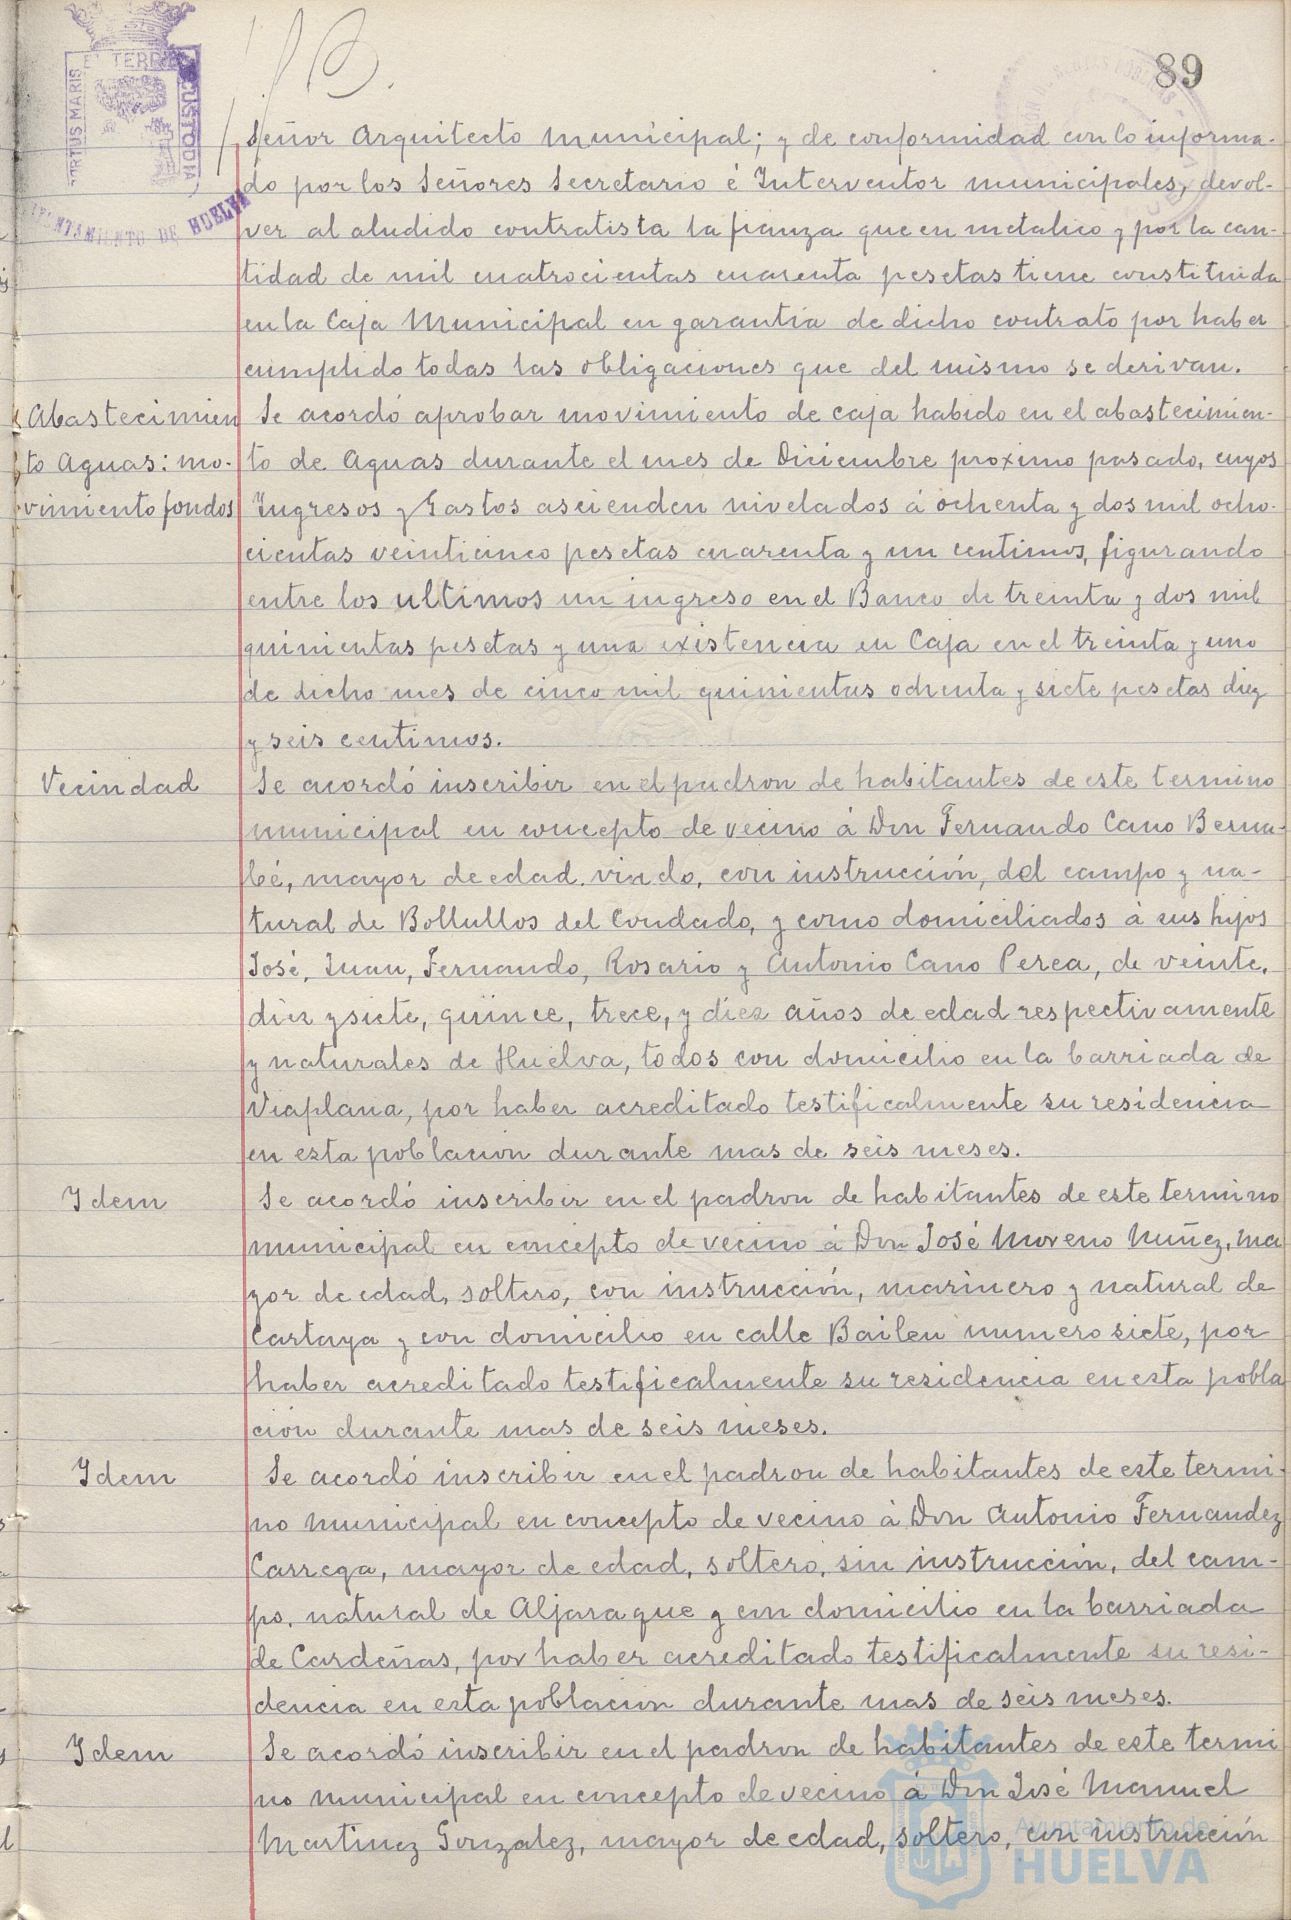 89
PORTUS MARIS ET TERRE CUSTODIA
AYUNTAMIENTO DE HUELVA
Señor Arquitecto municipal; y de conformidad con lo informa-
do por los Señores Secretario é Interventor municipales, devol-
ver al aludido contratista la fianza que en metalico y por la can-
tidad de mil cuatrocientas cuarenta pesetas tiene constituida
en la Caja Municipal en garantia de dicho contrato por haber
cumplido todas las obligaciones que del mismo se derivan.
Abastecimien
to Aguas: mo-
vimiento fondos
Se acordó aprobar movimiento de caja habido en el abastecimien-
to de Aguas durante el mes de Diciembre proximo pasado, cuyos
Ingresos y Gastos ascienden nivelados á ochenta y dos mil ocho-
cientas veinticinco pesetas cuarenta y un centimos, figurando
entre los ultimos un ingreso en el Banco de treinta y dos mil
quinientas pesetas y una existencia en Caja en el treinta y uno
de dicho mes de cinco mil quinientas ochenta y siete pesetas diez
y seis centimos.
Vecindad
Se acordó inscribir en el padron de habitantes de este termino
municipal en concepto de vecino á Don Fernando Cano Berna-
bé, mayor de edad, viudo, con instrucción, del campo y na-
tural de Bollullos del Condado, y como domiciliados á sus hijos
José, Juan, Fernando, Rosario y Antonio Cano Perea, de veinte,
diez y siete, quince, trece, y diez años de edad respectivamente
y naturales de Huelva, todos con domicilio en la barriada de
Viaplana, por haber acreditado testificalmente su residencia
en esta poblacion durante mas de seis meses.
Idem
Se acordó inscribir en el padron de habitantes de este termino
municipal en concepto de vecino á Don José Moreno Nuñez, ma
yor de edad, soltero, con instrucción, marinero y natural de
Cartaya y con domicilio en calle Bailen numero siete, por
haber acreditado testificalmente su residencia en esta pobla
ción durante mas de seis meses.
Idem
Se acordó inscribir en el padron de habitantes de este termi-
no municipal en concepto de vecino á Don Antonio Fernandez
Carrega, mayor de edad, soltero, sin instrucción, del cam-
po, natural de Aljaraque y con domicilio en la barriada
de Cardeñas, por haber acreditado testificalmente su resi-
dencia en esta poblacion durante mas de seis meses.
Idem
Se acordó inscribir en el padron de habitantes de este termi
no municipal en concepto de vecino á Don José Manuel
Martinez Gonzalez, mayor de edad, soltero, con instrucción
Ayuntamiento de
HUELVA